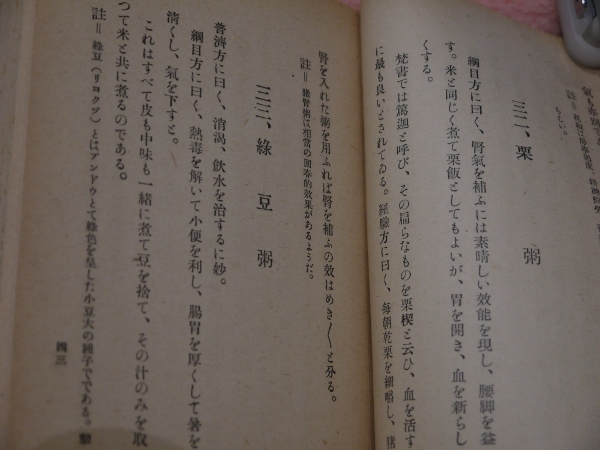 三二、栗粥
綱目方に曰く、腎氣を補ふには素晴しい效能を現し、腰脚を益
す。米と同じく煮て栗飯としてもよいが、胃を開き、血を新らし
くする。
梵書では篤迦と呼び、その扁らなものを栗楔と云ひ、血を活す
に最も良いとされてゐる。經驗方に曰く、毎朝乾栗を細嚼し、猪
腎を入れた粥を用ふれば腎を補ふの效はめき〳〵と分る。
註＝猪腎粥は相當の回春的效果があるようだ。
三三、綠豆粥
普濟方に曰く、消渴、飮水を治するに妙。
綱目方に曰く、熱毒を解いて小便を利し、腸胃を厚くして暑を
清くし、氣を下すと。
これはすべて皮も中味も一緒に煮て豆を捨て、その汁のみを取
つて米と共に煮るのである。
註＝綠豆（リヨクヅ）とはアンドウとて綠色を呈した小豆大の種子である。
四三